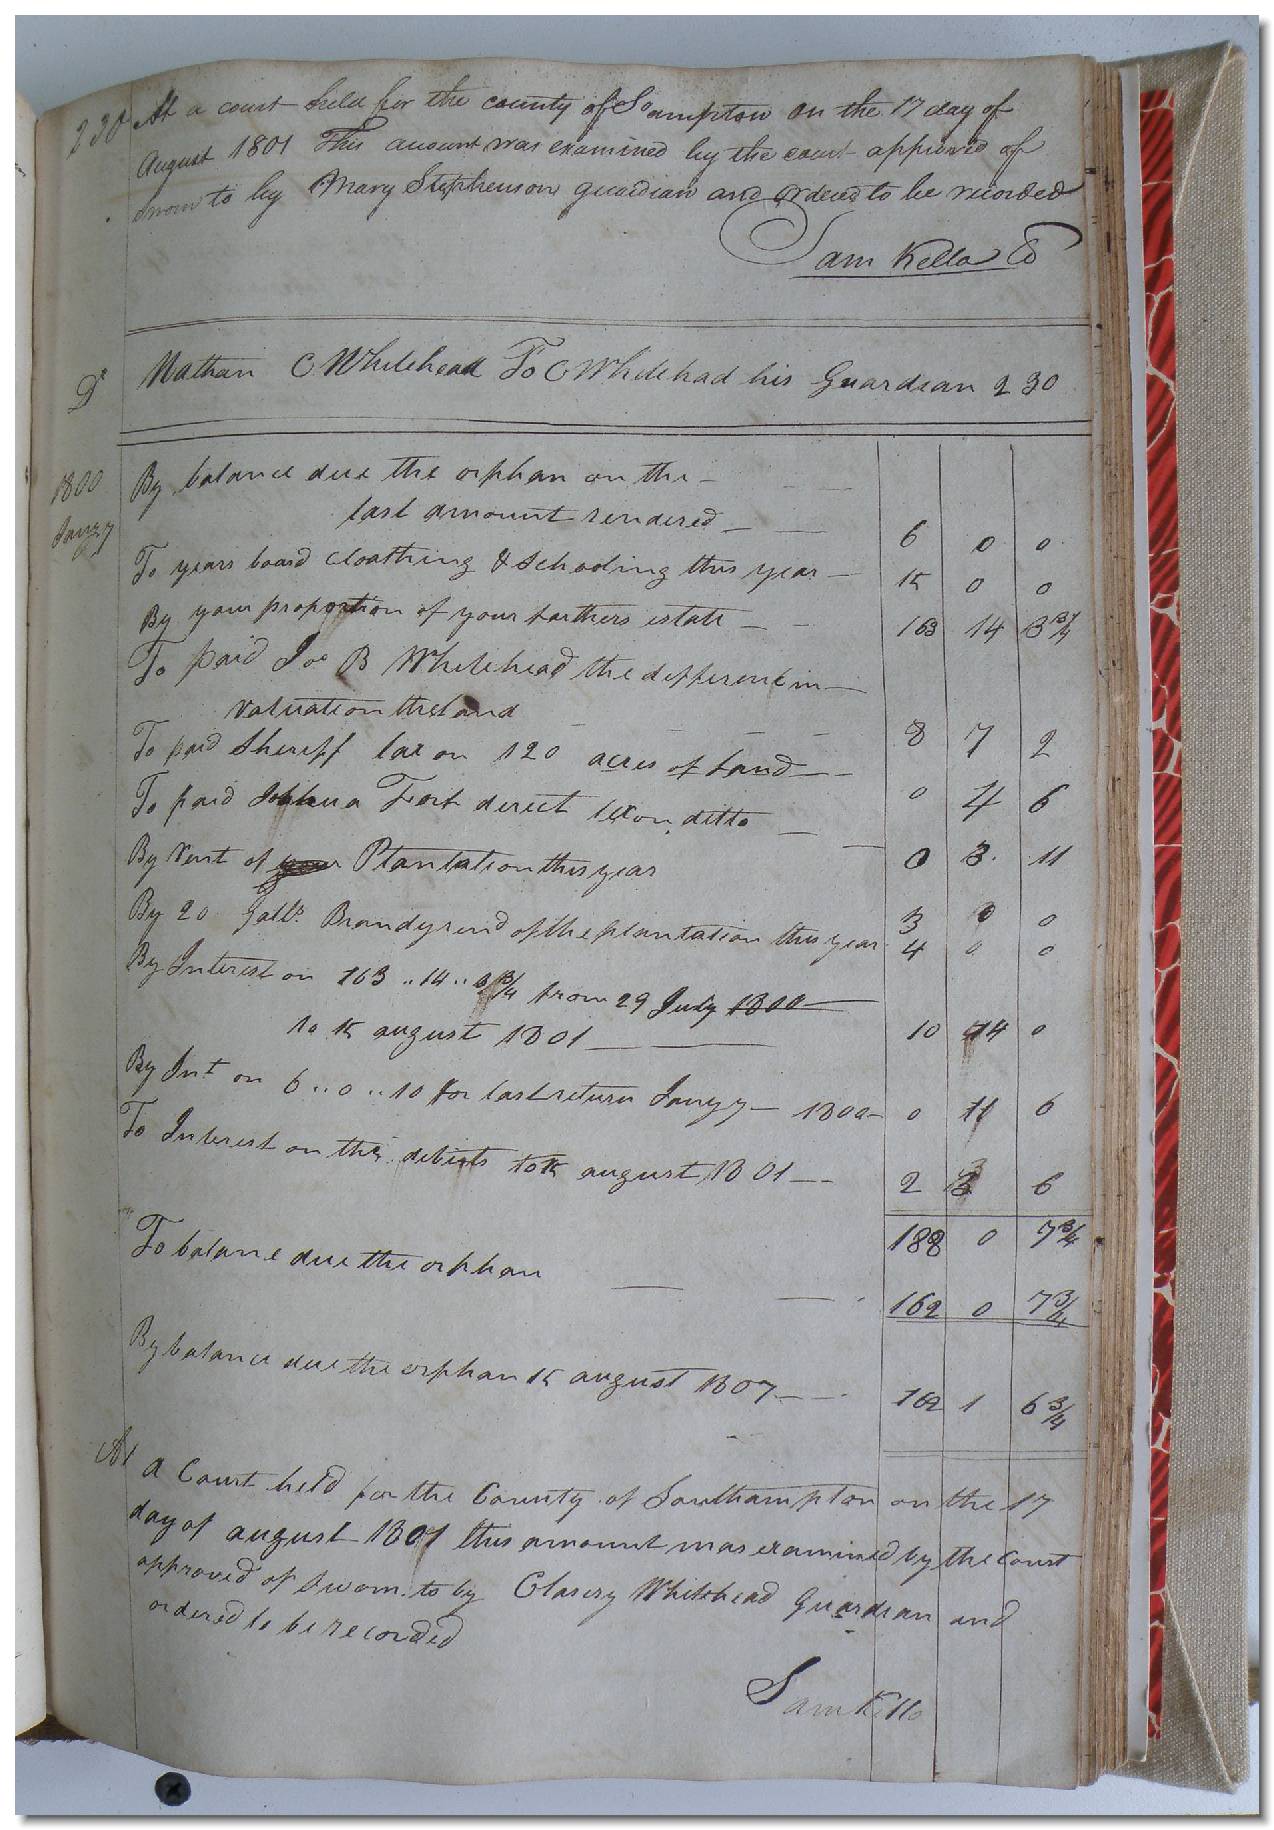 230 At a court held for the county of Soampton on the 17 day of
August 1801 This account was examined by the court approved of
sworn to by Mary Stephenson guardian and ordered to be recorded
Sam Kello
Dr Nathan Whitehead To C Whitehead his Guardian 230
1800 By balance due the orphan on the
Jany 7 last amount rendered 6 0 0
To years board cloathing & schooling this year 15 0 0
By your proportion of your farthers estate 163 14 3 3/4
To paid Joe B Whitehead the different in
valuation the Land 8 7 2
To paid Sheriff tax on 120 acres of Land 0 4 6
To paid Joshua Fort direct tax on ditto 0 3 11
By rent of Plantation this year 3 0 0
By 20 Galls Brandy rend of the plantation this year 4 0 0
By Interest on 163..14..3 3/4 from 29 July 1800
to 15 august 1801 10 14 0
By Int on 6..0..10 for last return Jany 7 1800 0 11 6
To Interest on the debits to 15 august 1801 2 3 6
188 0 7 3/4
To balance due the orphan 162 0 7 3/4
By balance due the orphan 15 august 1807 162 1 6 3/4
At a Court held for the County of Southampton on the 17
day of august 1801 this amount was examined by the court
approved of sworn to by Whitehead Guardian and
ordered to be recorded
Sam Kello